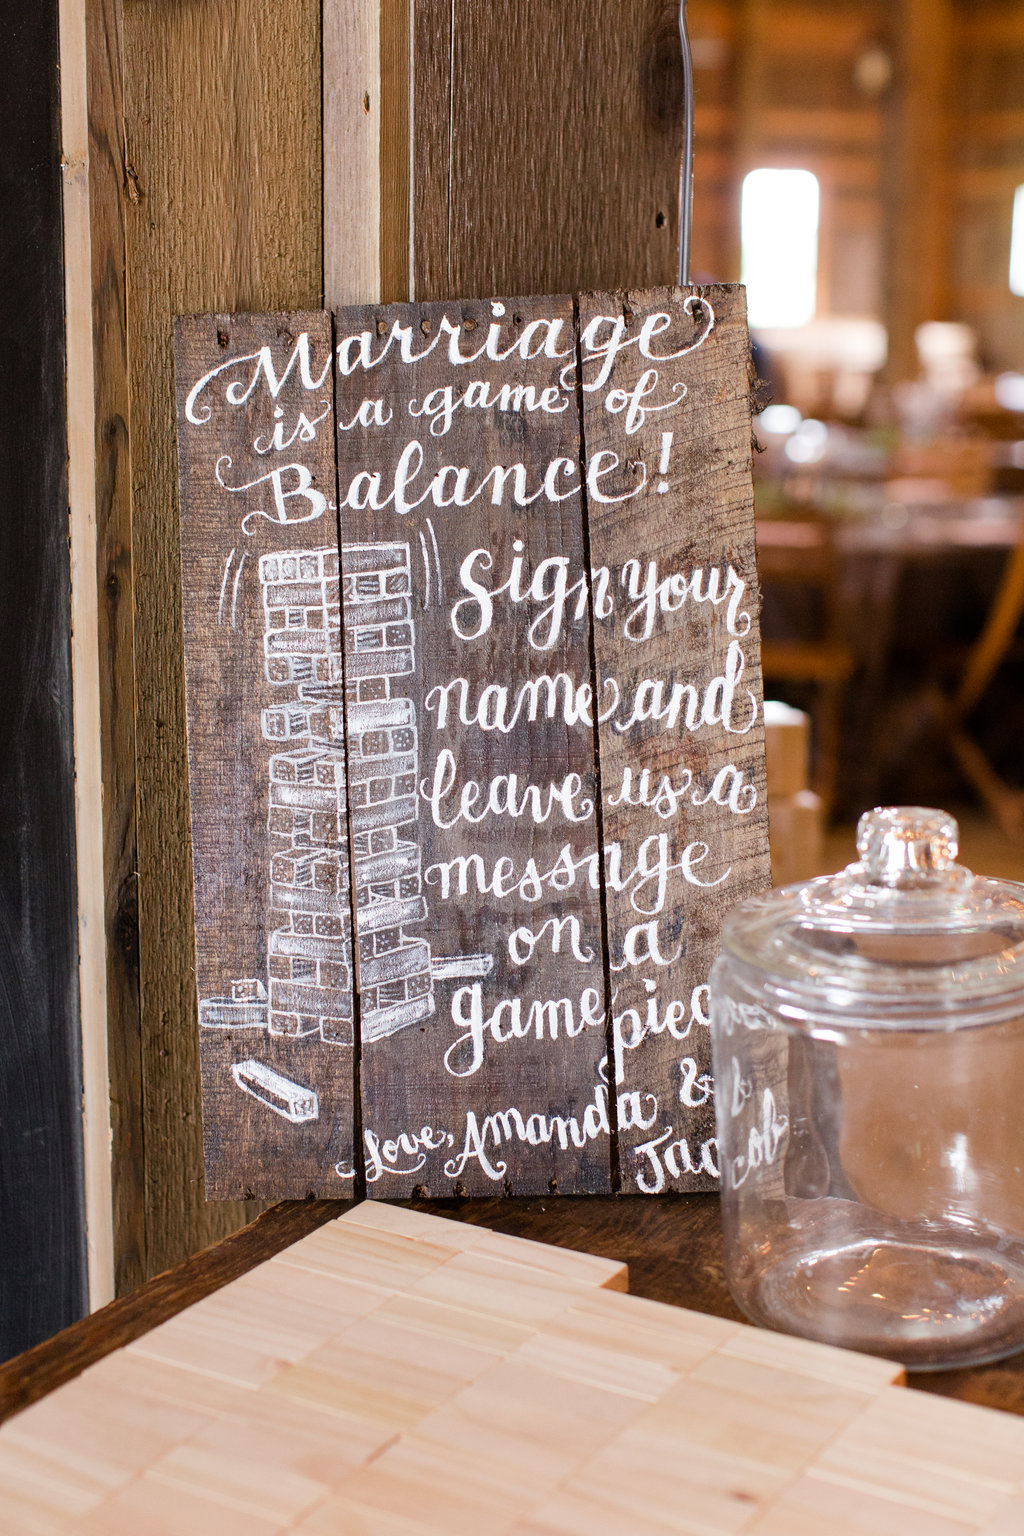 Marriage
is a game of
Balance!
Sign your
name and
leave us a
message
on a
game piec
Love, Amanda &
Jacob